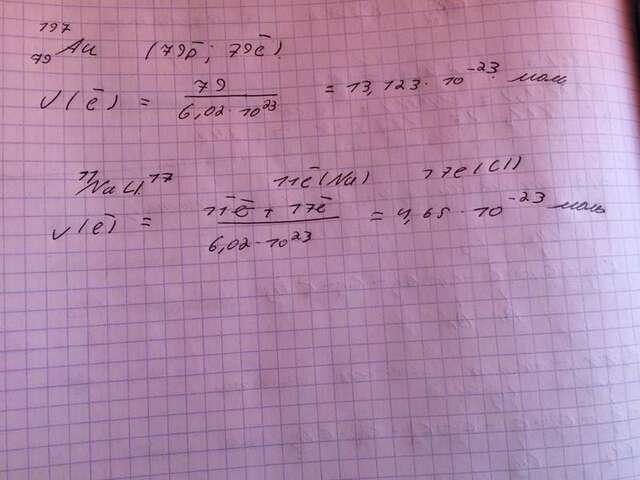 ¹⁹⁷₇₉Au (79p̄; 79ē)
ν(ē) = 79 / 6,02·10²³ = 13,123·10⁻²³ моль
¹¹NaCl¹⁷ 11ē(Na) 17e(Cl)
ν(ē) = 11ē + 17ē / 6,02·10²³ = 4,65·10⁻²³ моль